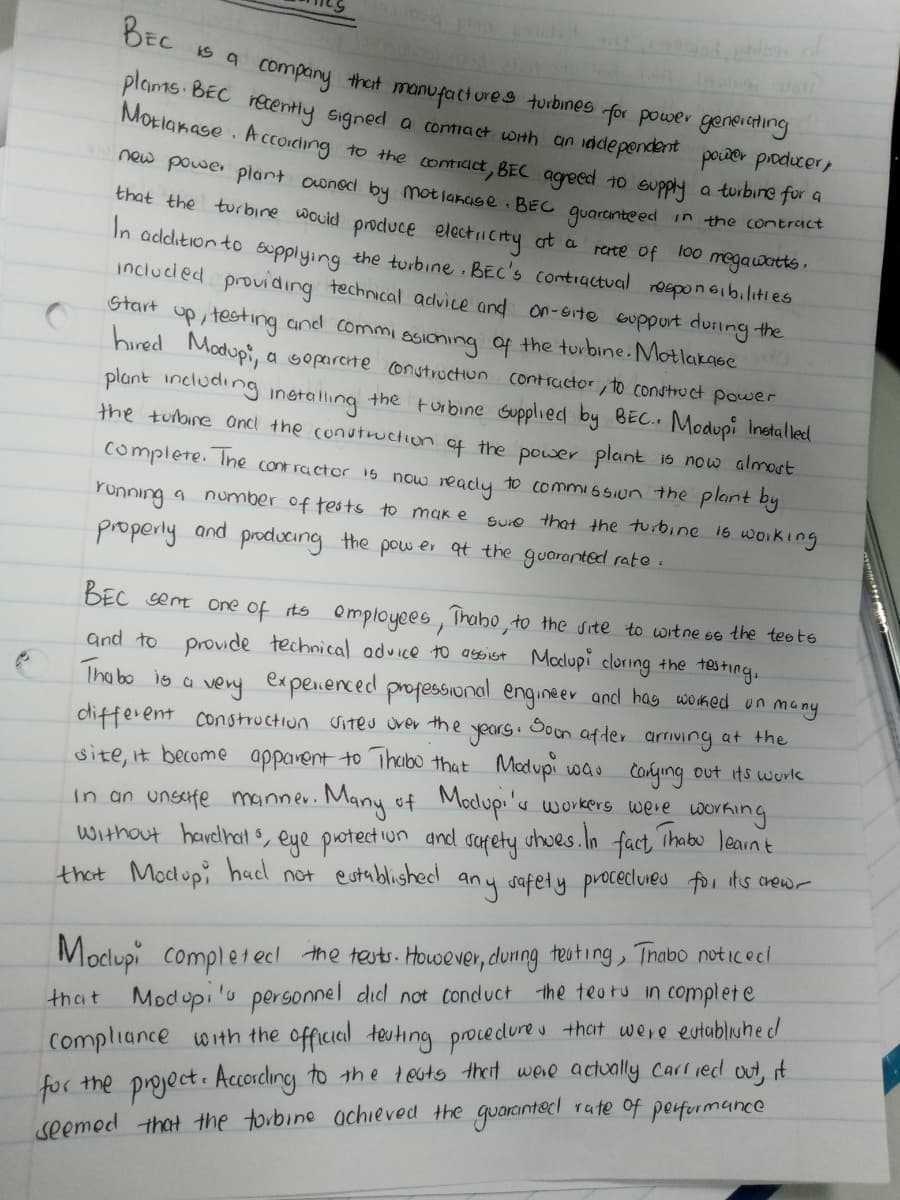 BEC is a company that manufactures turbines for power generating
plants. BEC recently signed a contract with an iddependent power producer,
Motlakase. According to the contract, BEC agreed to supply a turbine for a
new power plant owned by motlakase. BEC guaranteed in the contract
that the turbine would produce electricity at a rate of 100 megawatts.
In addition to supplying the turbine, BEC's contractual responsibilities
included providing technical advice and on-site support during the
start up, testing and commissioning of the turbine. Motlakase
hired Modupi, a separate construction contractor, to construct power
plant including installing the turbine supplied by BEC.. Modupi Installed
the turbine and the construction of the power plant is now almost
complete. The contractor is now ready to commission the plant by
running a number of tests to make sure that the turbine is working
properly and producing the power at the guaranted rate.
BEC sent one of its employees, Thabo, to the site to witness the tests
and to provide technical advice to assist Modupi during the testing.
Thabo is a very experienced professional engineer and has worked on many
different construction sites over the years. Soon after arriving at the
site, it become apparent to Thabo that Modupi was carying out its work
in an unsafe manner. Many of Modupi's workers were working
without hardhats, eye protection and safety shoes. In fact, Thabo learnt
that Modupi had not established any safety procedures for its crew
Modupi completed the tests. However, during testing, Thabo noticed
that Modupi's personnel did not conduct the tests in complete
compliance with the official testing procedures that were established
for the project. According to the tests that were actually carried out, it
seemed that the turbine achieved the guaranted rate of performance